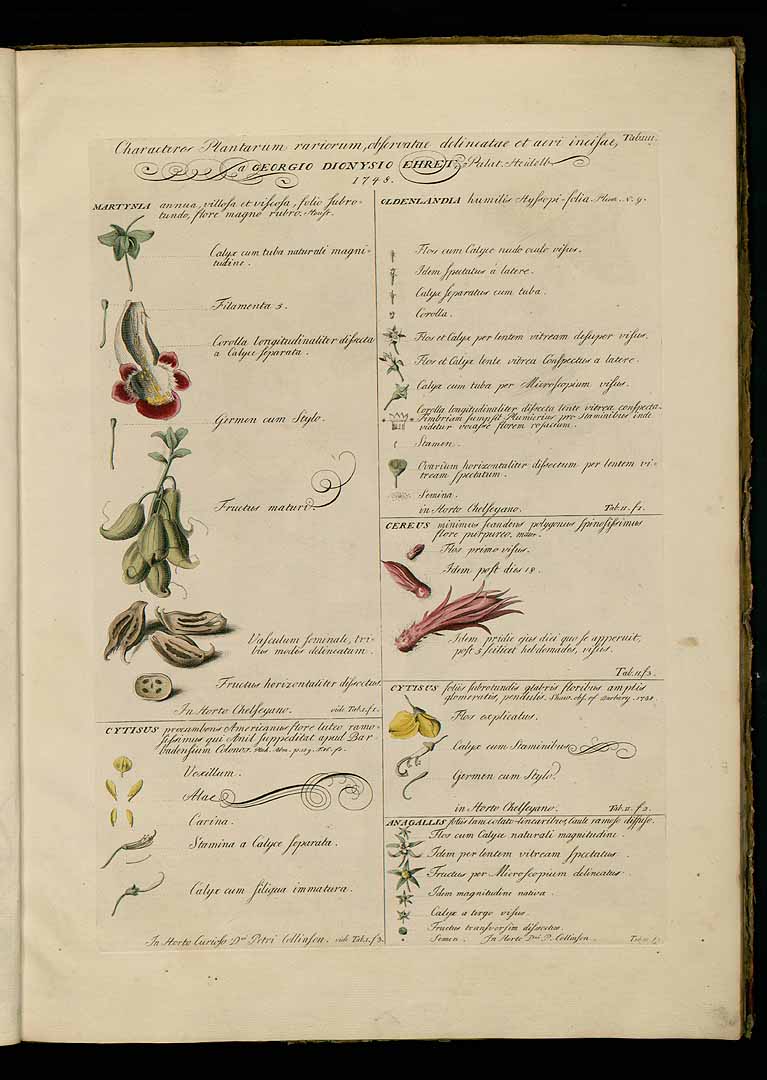 Characteres Plantarum rariorum, observatae delineatae et aeri incisae, Tab. III.
a GEORGIO DIONYSIO EHRET, Palat. Heidelb.
1748.
MARTYNIA annua, villosa et viscosa, folio subro-
tundo, flore magno rubro. Houst.
Calyx cum tuba naturali magni-
tudine.
Filamenta 5.
Corolla longitudinaliter dissecta
a Calyce separata.
Germen cum Stylo.
Fructus maturi.
Vasculum seminale, tri-
bus modis delineatum.
Fructus horizontaliter dissectus
In Horto Chelseyano. vide Tab. I. f. 1.
CYTISUS procumbens Americanus flore luteo ramo-
sissimus qui Anil suppeditat apud Bar-
badensium Colonos. Pluk. Alm. p. 129.
Vexillum.
Alae
Carina.
Stamina a Calyce separata.
Calyx cum siliqua immatura.
In Horto Curioso Dni Petri Collinson. vide Tab. I. f. 3.
OLDENLANDIA humilis Hyssopi-folia. Plum. N. 9.
Flos cum Calyce nudo oculo visus.
Idem spectatus a latere.
Calyx separatus cum tuba.
Corolla.
Flos et Calyx per lentem vitream desuper visus.
Flos et Calyx lente vitrea Conspectus a latere.
Calyx cum tuba per Microscopium visus.
Corolla longitudinaliter dissecta lente vitrea conspecta.
Fimbriam sumpsit Plumerius pro Staminibus inde
videtur vocasse florem rosaceum.
Stamen.
Ovarium horizontaliter dissectum per lentem vi-
tream spectatum.
Semina.
in Horto Chelseyano. Tab. II. f. 1.
CEREUS minimus scandens polygonus spinosissimus
flore purpureo.
Flos primo visus.
Idem post dies 18.
Idem pridie ejus diei quo se apperuit,
post 5 scilicet hebdomades, visus.
Tab. II. f. 3.
CYTISUS foliis subrotundis glabris floribus amplis
glomeratis, pendulis. Shaw. obs. of Barbary. 1738.
Flos explicatus.
Calyx cum Staminibus
Germen cum Stylo.
in Horto Chelseyano. Tab. II. f. 2.
ANAGALLIS foliis lanceolato-linearibus, caule ramoso diffuso.
Flos cum Calyce naturali magnitudine.
Idem per lentem vitream spectatus.
Fructus per Microscopium delineatus.
Idem magnitudine nativa.
Calyx a tergo visus.
Fructus transversim dissectus.
Semen. In Horto Dni P. Collinson.